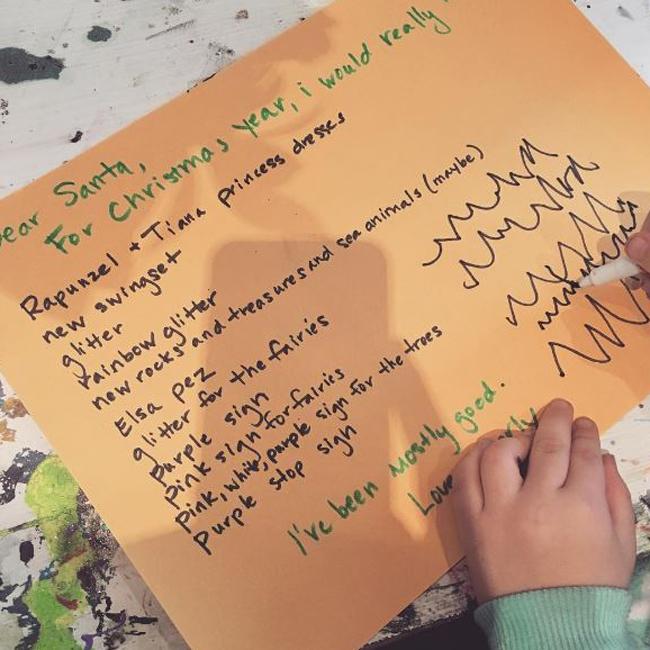 Dear Santa,
For Christmas year, i would really
Rapunzel + Tiana princess dresses
new swingset
glitter
rainbow glitter
new rocks and treasures and sea animals (maybe)
Elsa pez
glitter for the fairies
Purple sign
Pink sign for fairies
Pink, white, purple sign for the trees
Purple stop sign
I've been mostly good.
Love